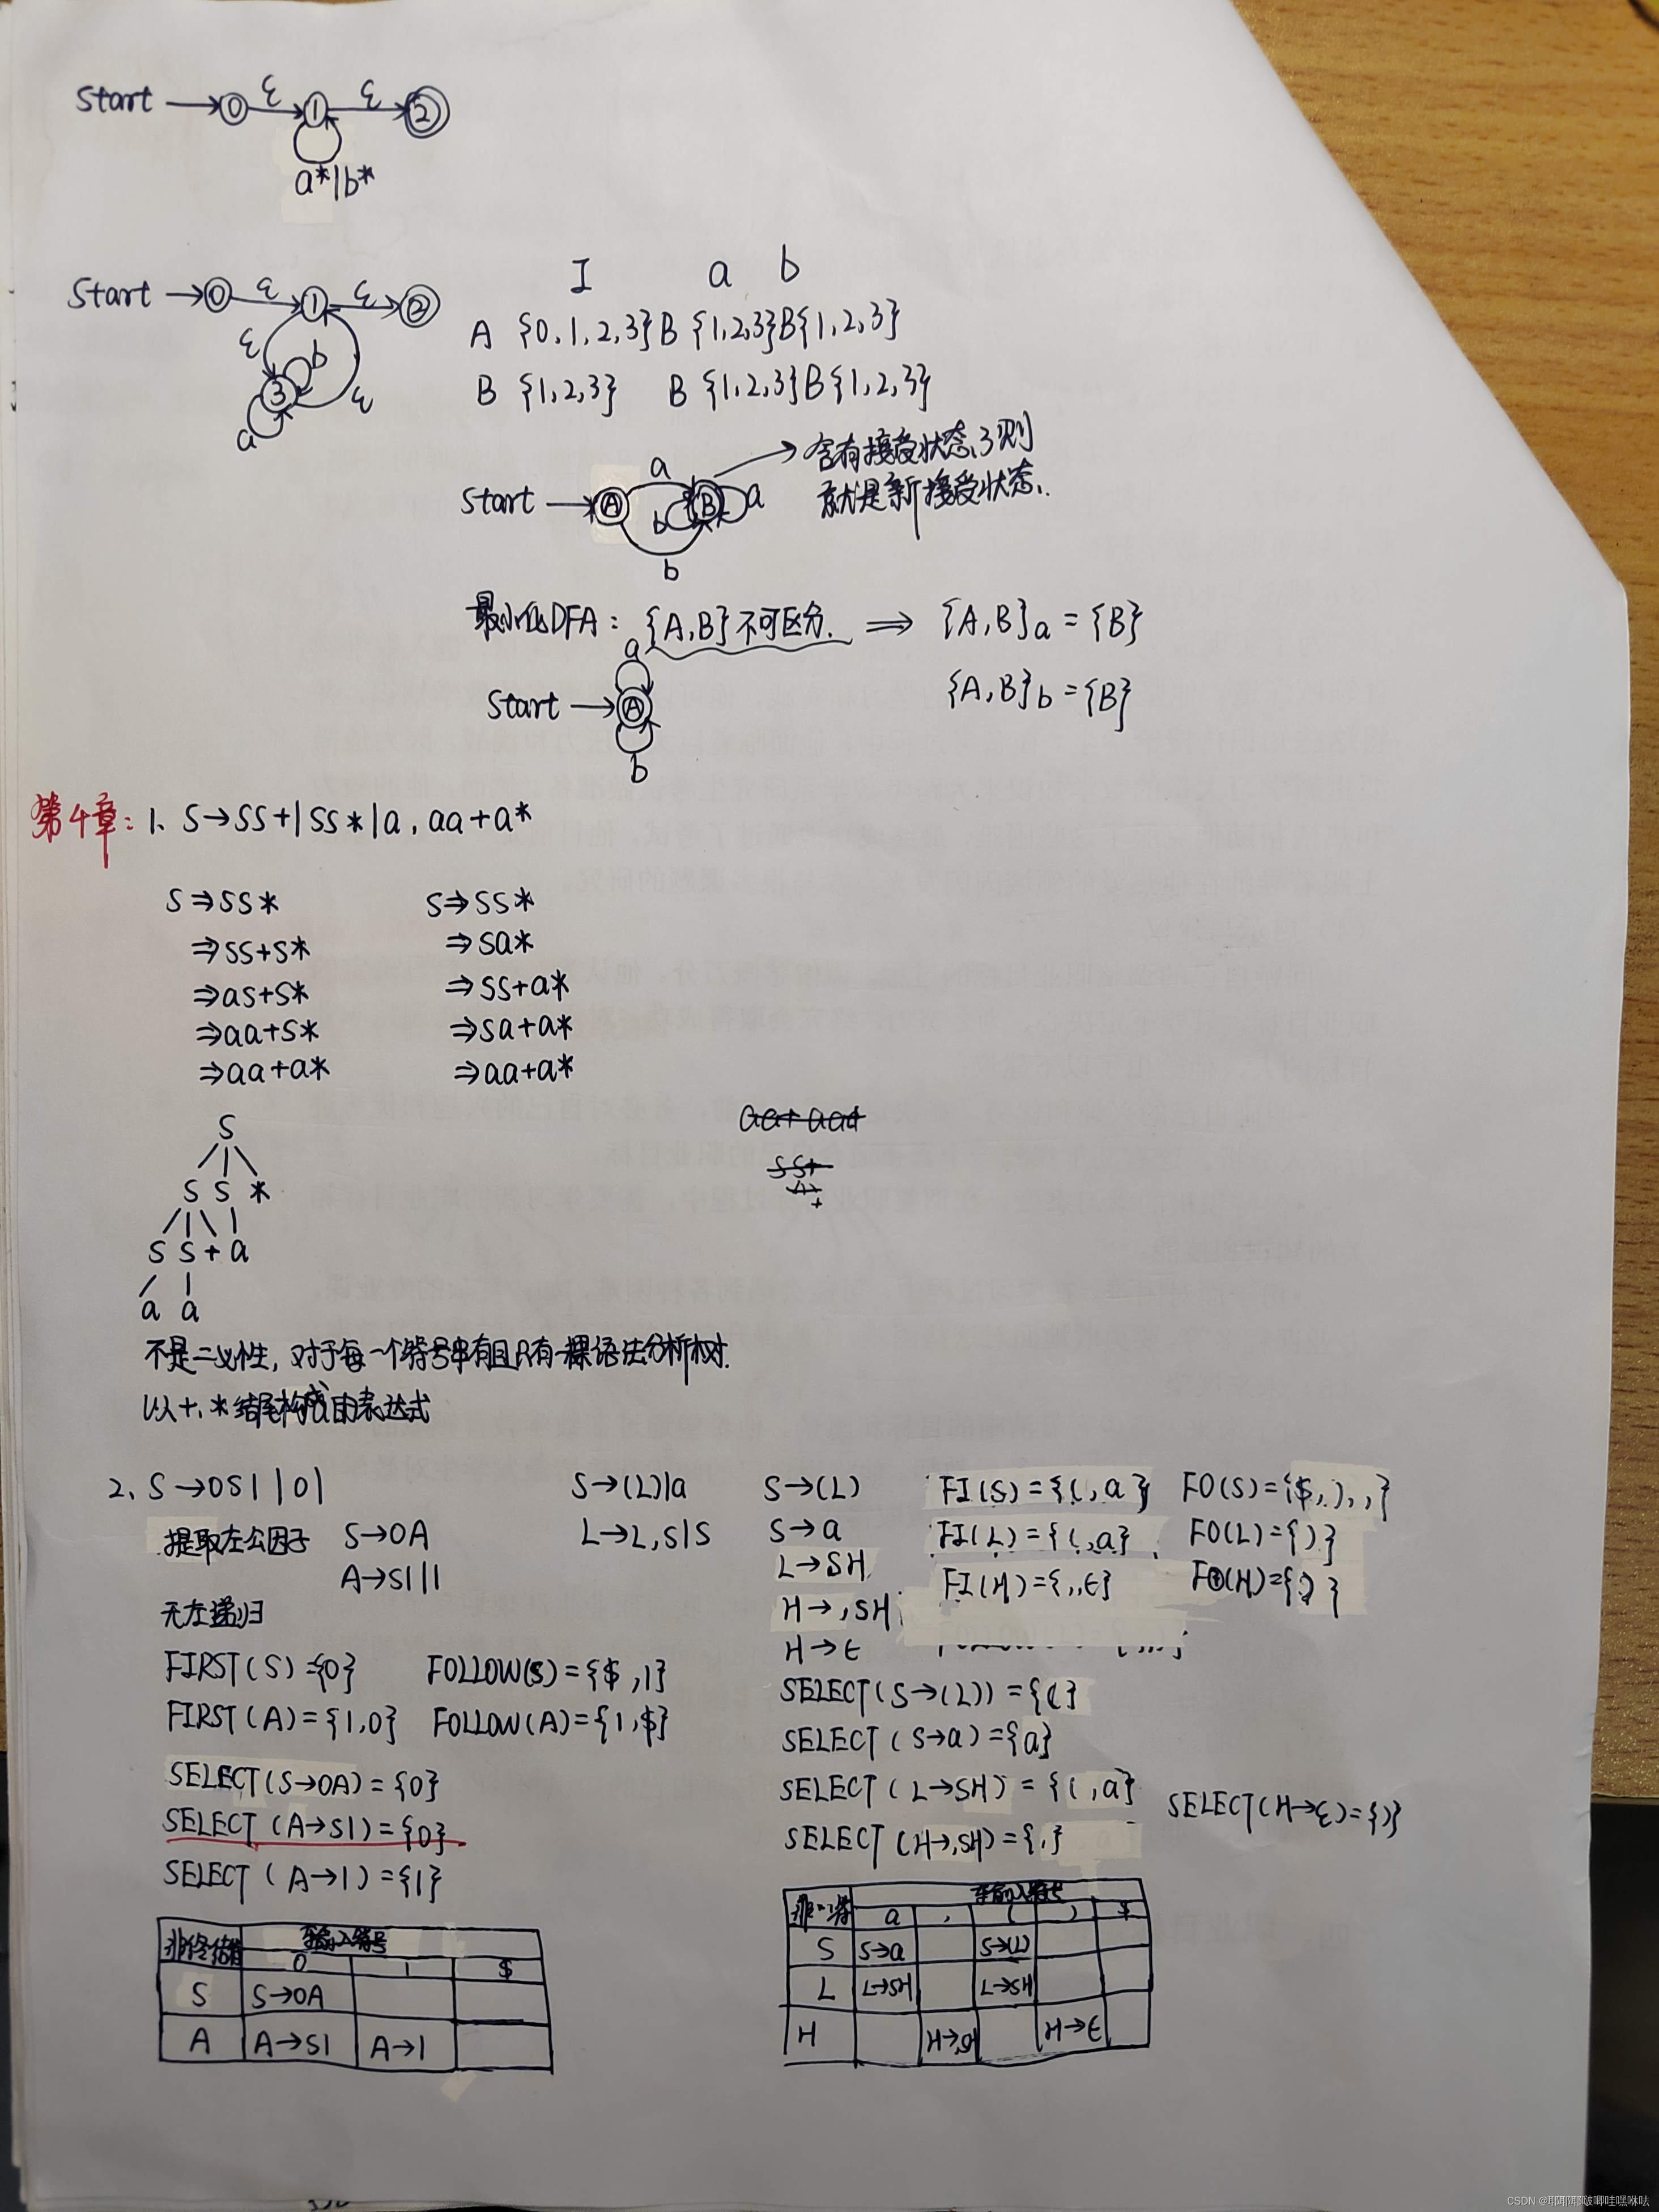 Start → 0 ε 1 ε 2
a*|b*
Start → 0 ε 1 ε 2
ε b 3 ε
a
I a b
A {0,1,2,3} B {1,2,3} B{1,2,3}
B {1,2,3} B {1,2,3} B{1,2,3}
含有接受状态,则
就是新接受状态.
Start → A a B a
b
b
最小化DFA: {A,B}不可区分. ⟹ {A,B}a = {B}
{A,B}b = {B}
a
Start → A
b
第4章: 1、S→SS+|SS*|a, aa+a*
S⇒SS*
⇒SS+S*
⇒aS+S*
⇒aa+S*
⇒aa+a*
S⇒SS*
⇒Sa*
⇒SS+a*
⇒Sa+a*
⇒aa+a*
S
S S *
S S + a
a a
不是二义性, 对于每一个符号串有且只有一棵语法分析树.
以+、*结尾构成的表达式
2、S→0S1|01
提取左公因子 S→0A
A→S1|1
无左递归
FIRST(S)={0} FOLLOW(S)={$,1}
FIRST(A)={1,0} FOLLOW(A)={1,$}
SELECT(S→0A)={0}
SELECT(A→S1)={0}
SELECT(A→1)={1}
非终结符 输入符号
0 1 $
S S→0A
A A→S1 A→1
S→(L)|a
L→L,S|S
S→(L)
S→a
L→SH
H→,SH
H→ε
FI(S)={(,a} FO(S)={$,),,}
FI(L)={(,a} FO(L)={)}
FI(H)={,,ε} FO(H)={)}
SELECT(S→(L))={(}
SELECT(S→a)={a}
SELECT(L→SH)={(,a}
SELECT(H→,SH)={,}
SELECT(H→ε)={)}
输入符号
a , ( ) $
S S→a S→(L)
L L→SH L→SH
H H→ε
CSDN